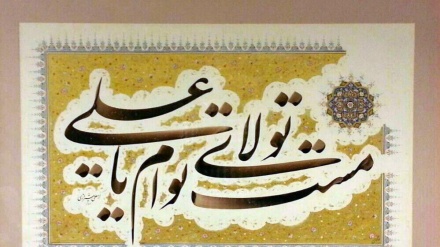 مست تولای توام یا علی